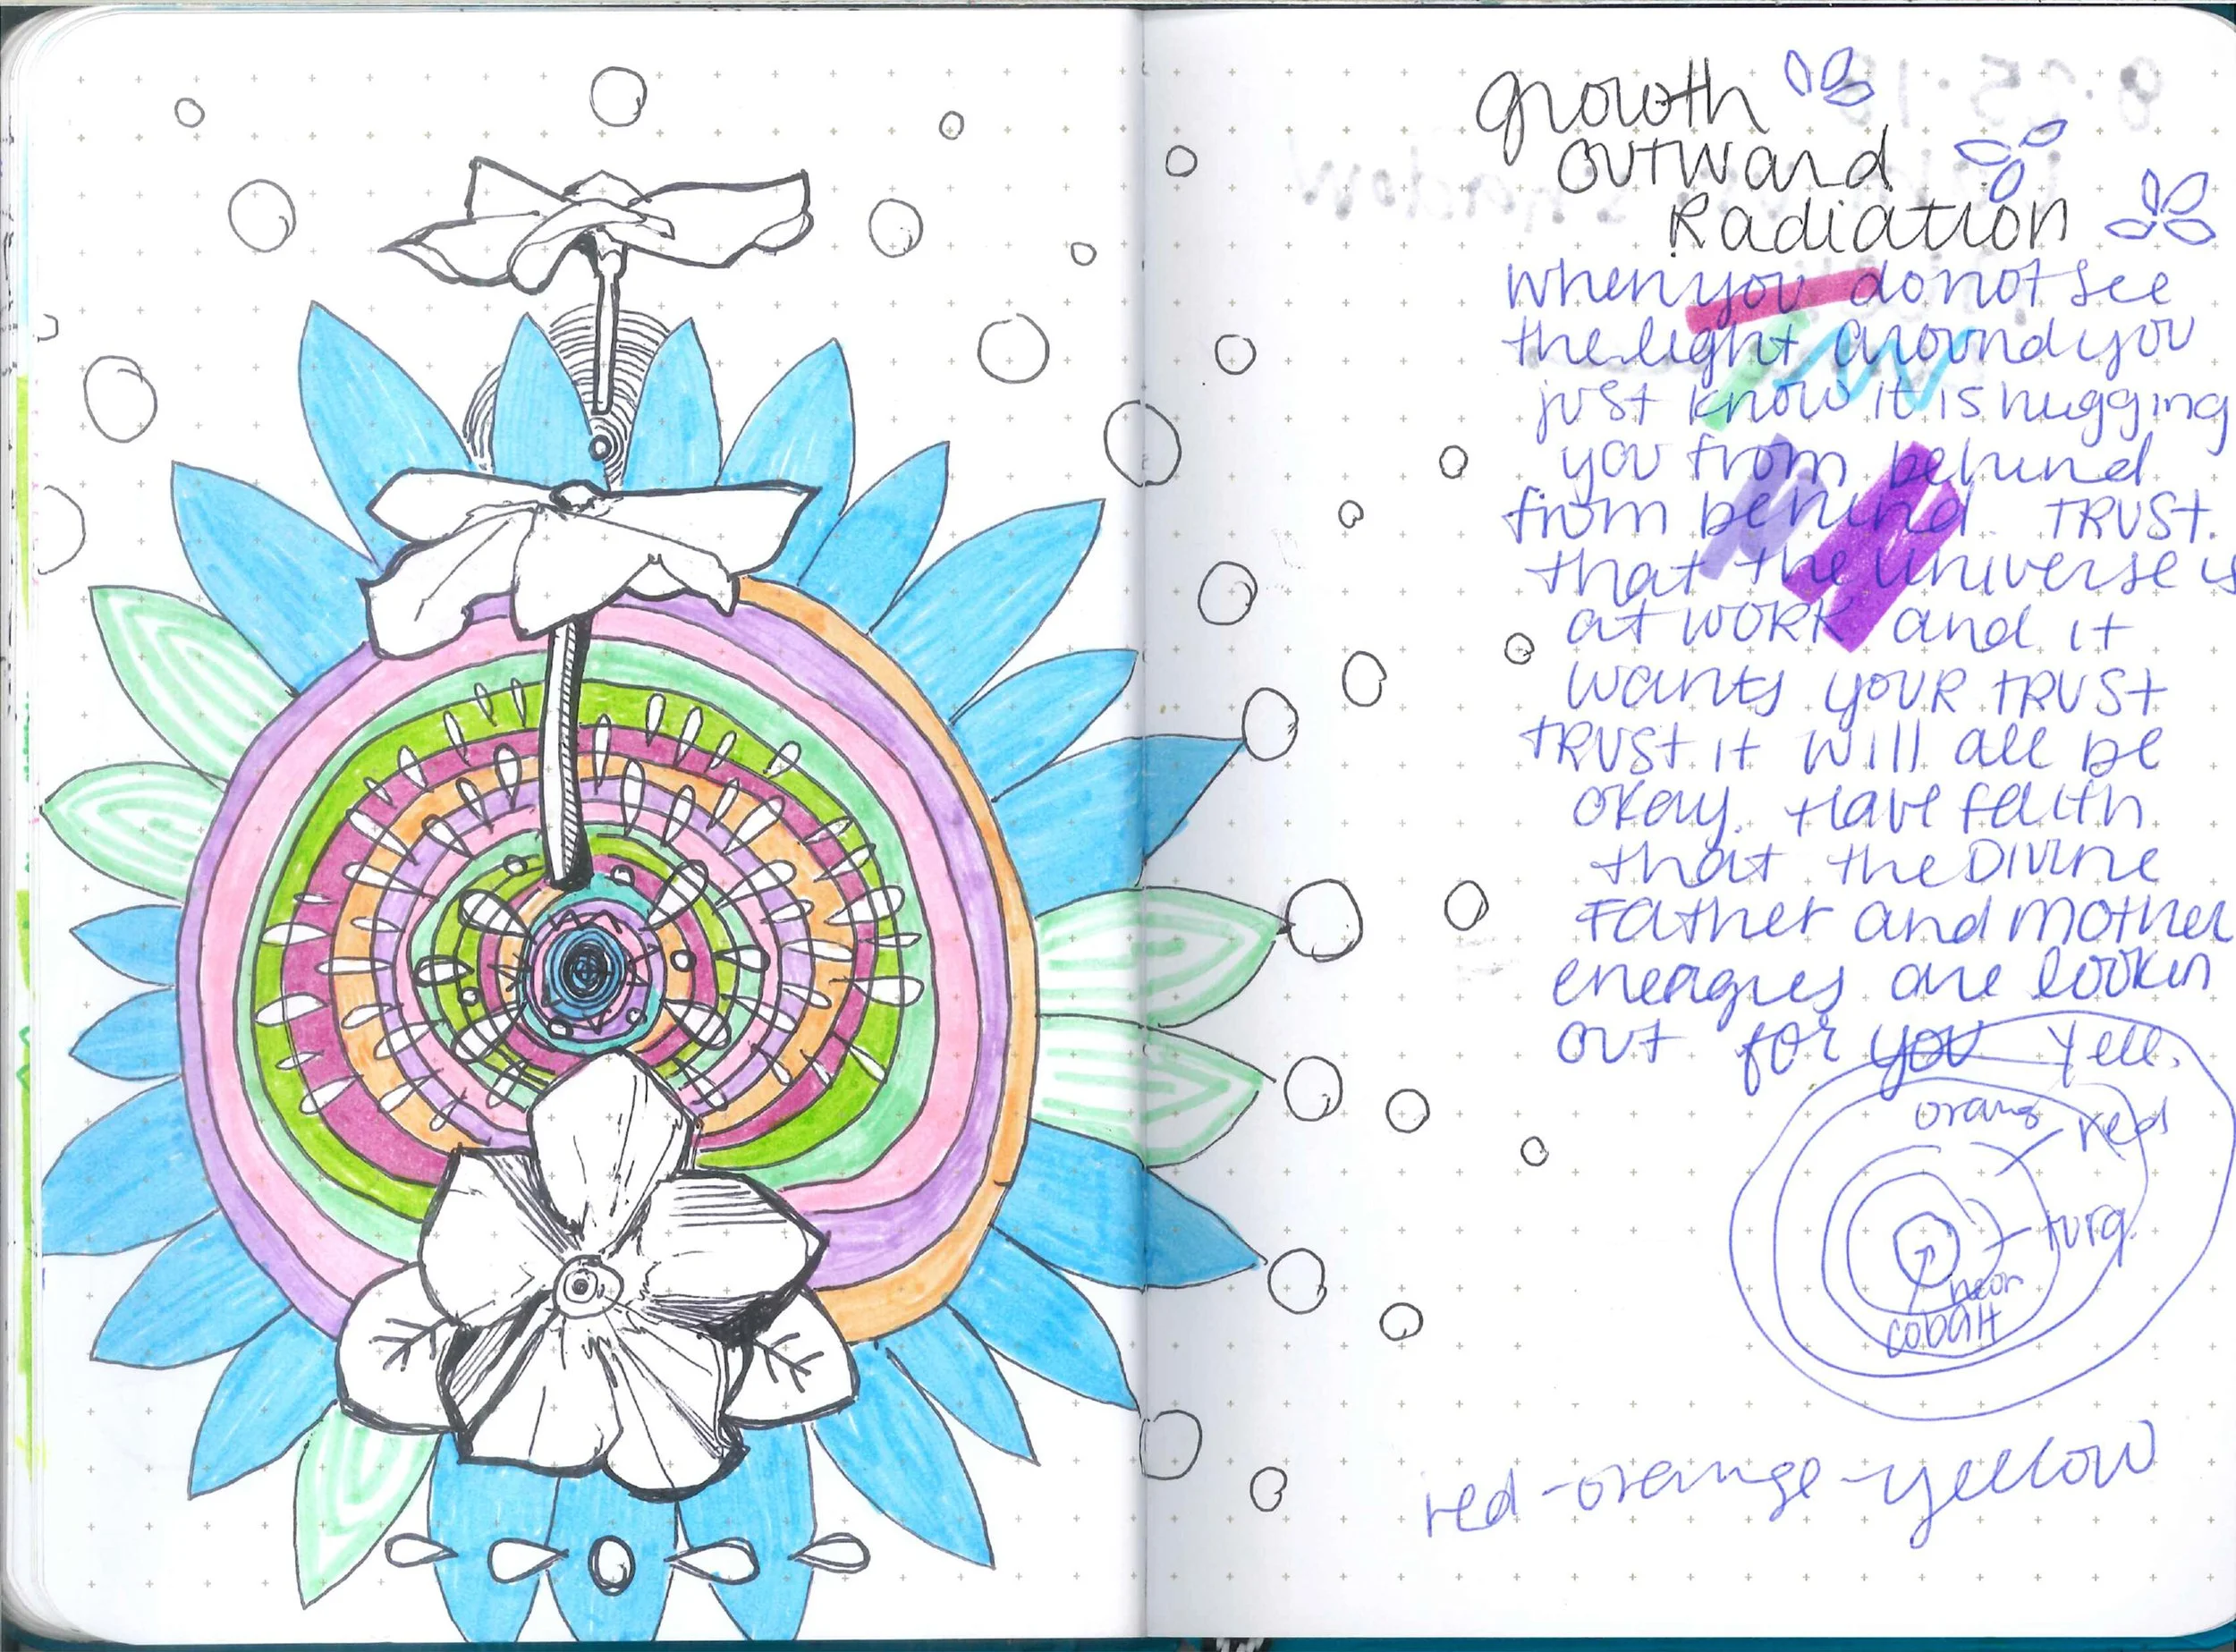 growth
outward
Radiation
when you do not see
the light around you
just know it is hugging
you from behind
from behind. TRUST.
that the universe is
at work and it
wants your TRUST
TRUST it will all be
okay. Have faith
that the Divine
Father and Mother
energies are lookin
out for you
yell.
orang
red
turq.
neon
cobalt
red-orange-yellow